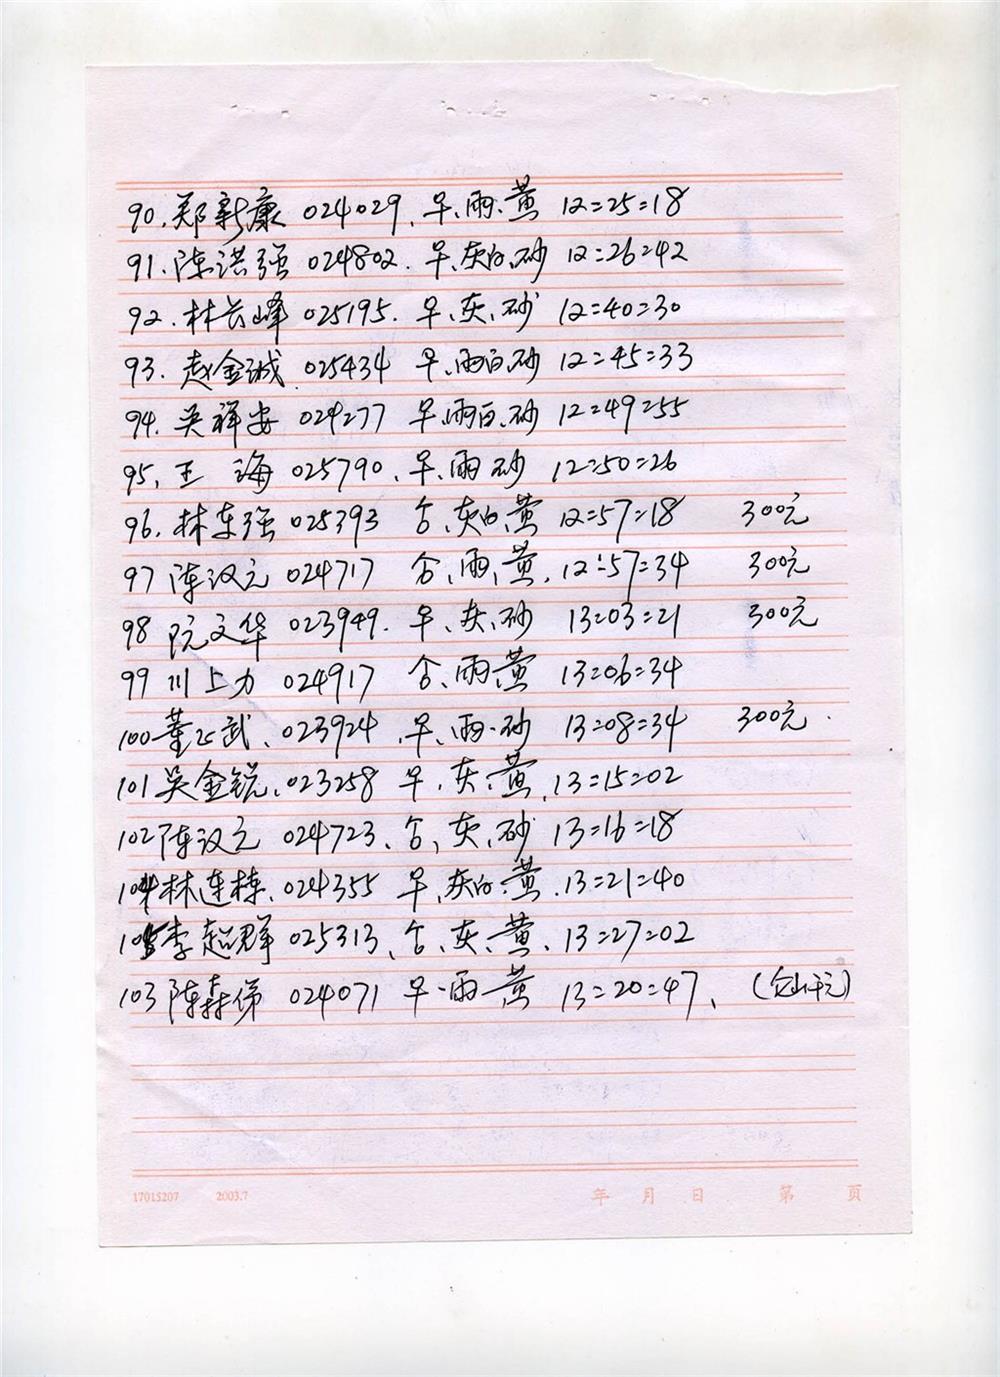 90.郑新康 024029.早、雨、黄 12=25=18
91.陈洪强 024802.早、灰白、砂 12=26=42
92.林长峰 025195.早、灰、砂 12=40=30
93.赵金诚 025434 早、雨白、砂 12=45=33
94.吴祥安 024277 早、雨白、砂 12=49=55
95、王海 025790、早、雨砂 12=50=26
96.林东强 025393 合、灰白、黄 12=57=18 300元
97 陈汉元 024717 合、雨、黄.12=57=34 300元
98 阮文华 023949.早、灰、砂 13=03=21 300元
99 川上力 024917 合、雨黄 13=06=34
100董正武、023924.早、雨、砂 13=08=34 300元.
101吴金锐、023258 早、灰、黄.13=15=02
102陈汉元 024723、合、灰、砂 13=16=18
104林连栋、024355 早、灰白、黄.13=21=40
105李超群 025313、合、灰、黄、13=27=02
103陈森俤 024071 早、雨、黄 13=20=47、
17015207 2003.7 年 月 日 第 页